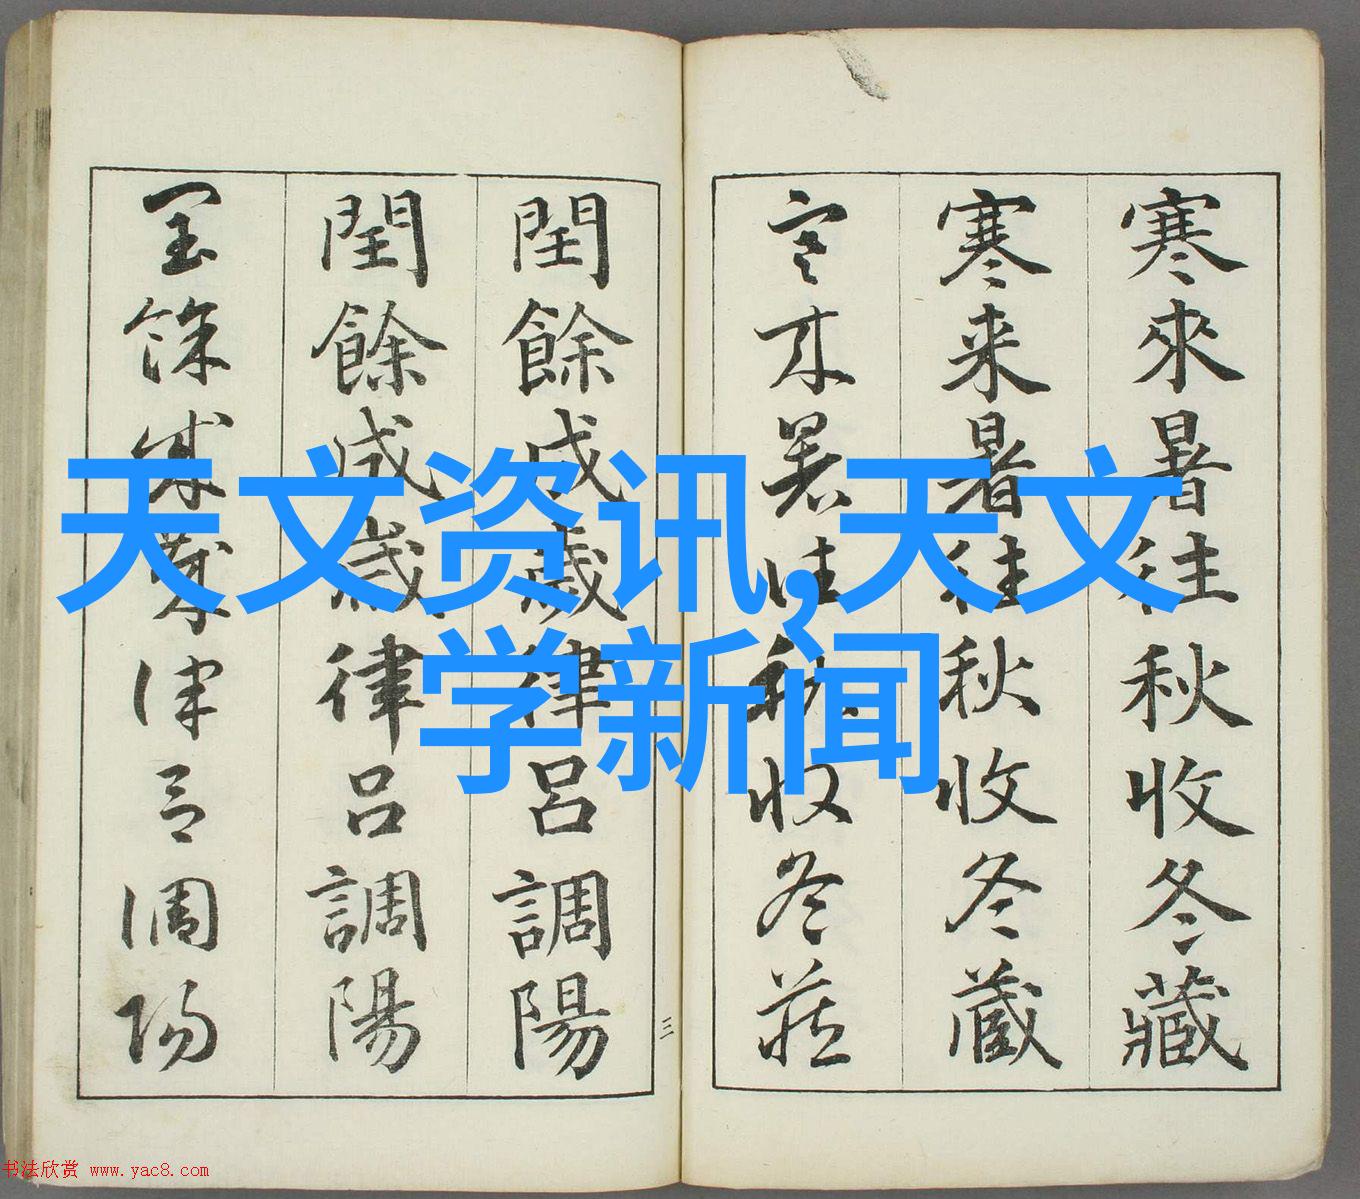 寒來暑往秋收冬藏
寒来暑往秋收冬蔵
寒来暑往秋收冬藏
三
閏餘成歲律呂調陽
閏餘成歲律呂調陽
閏餘成歲律呂調陽
天文资讯,天文
学新闻
书法欣赏 www.yac8.com